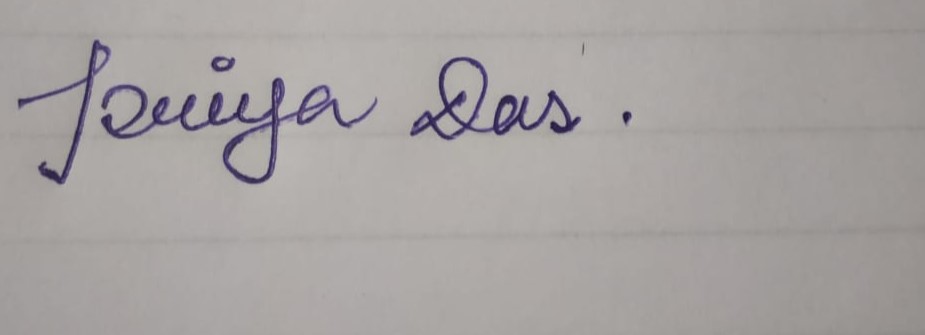 Priya Das.